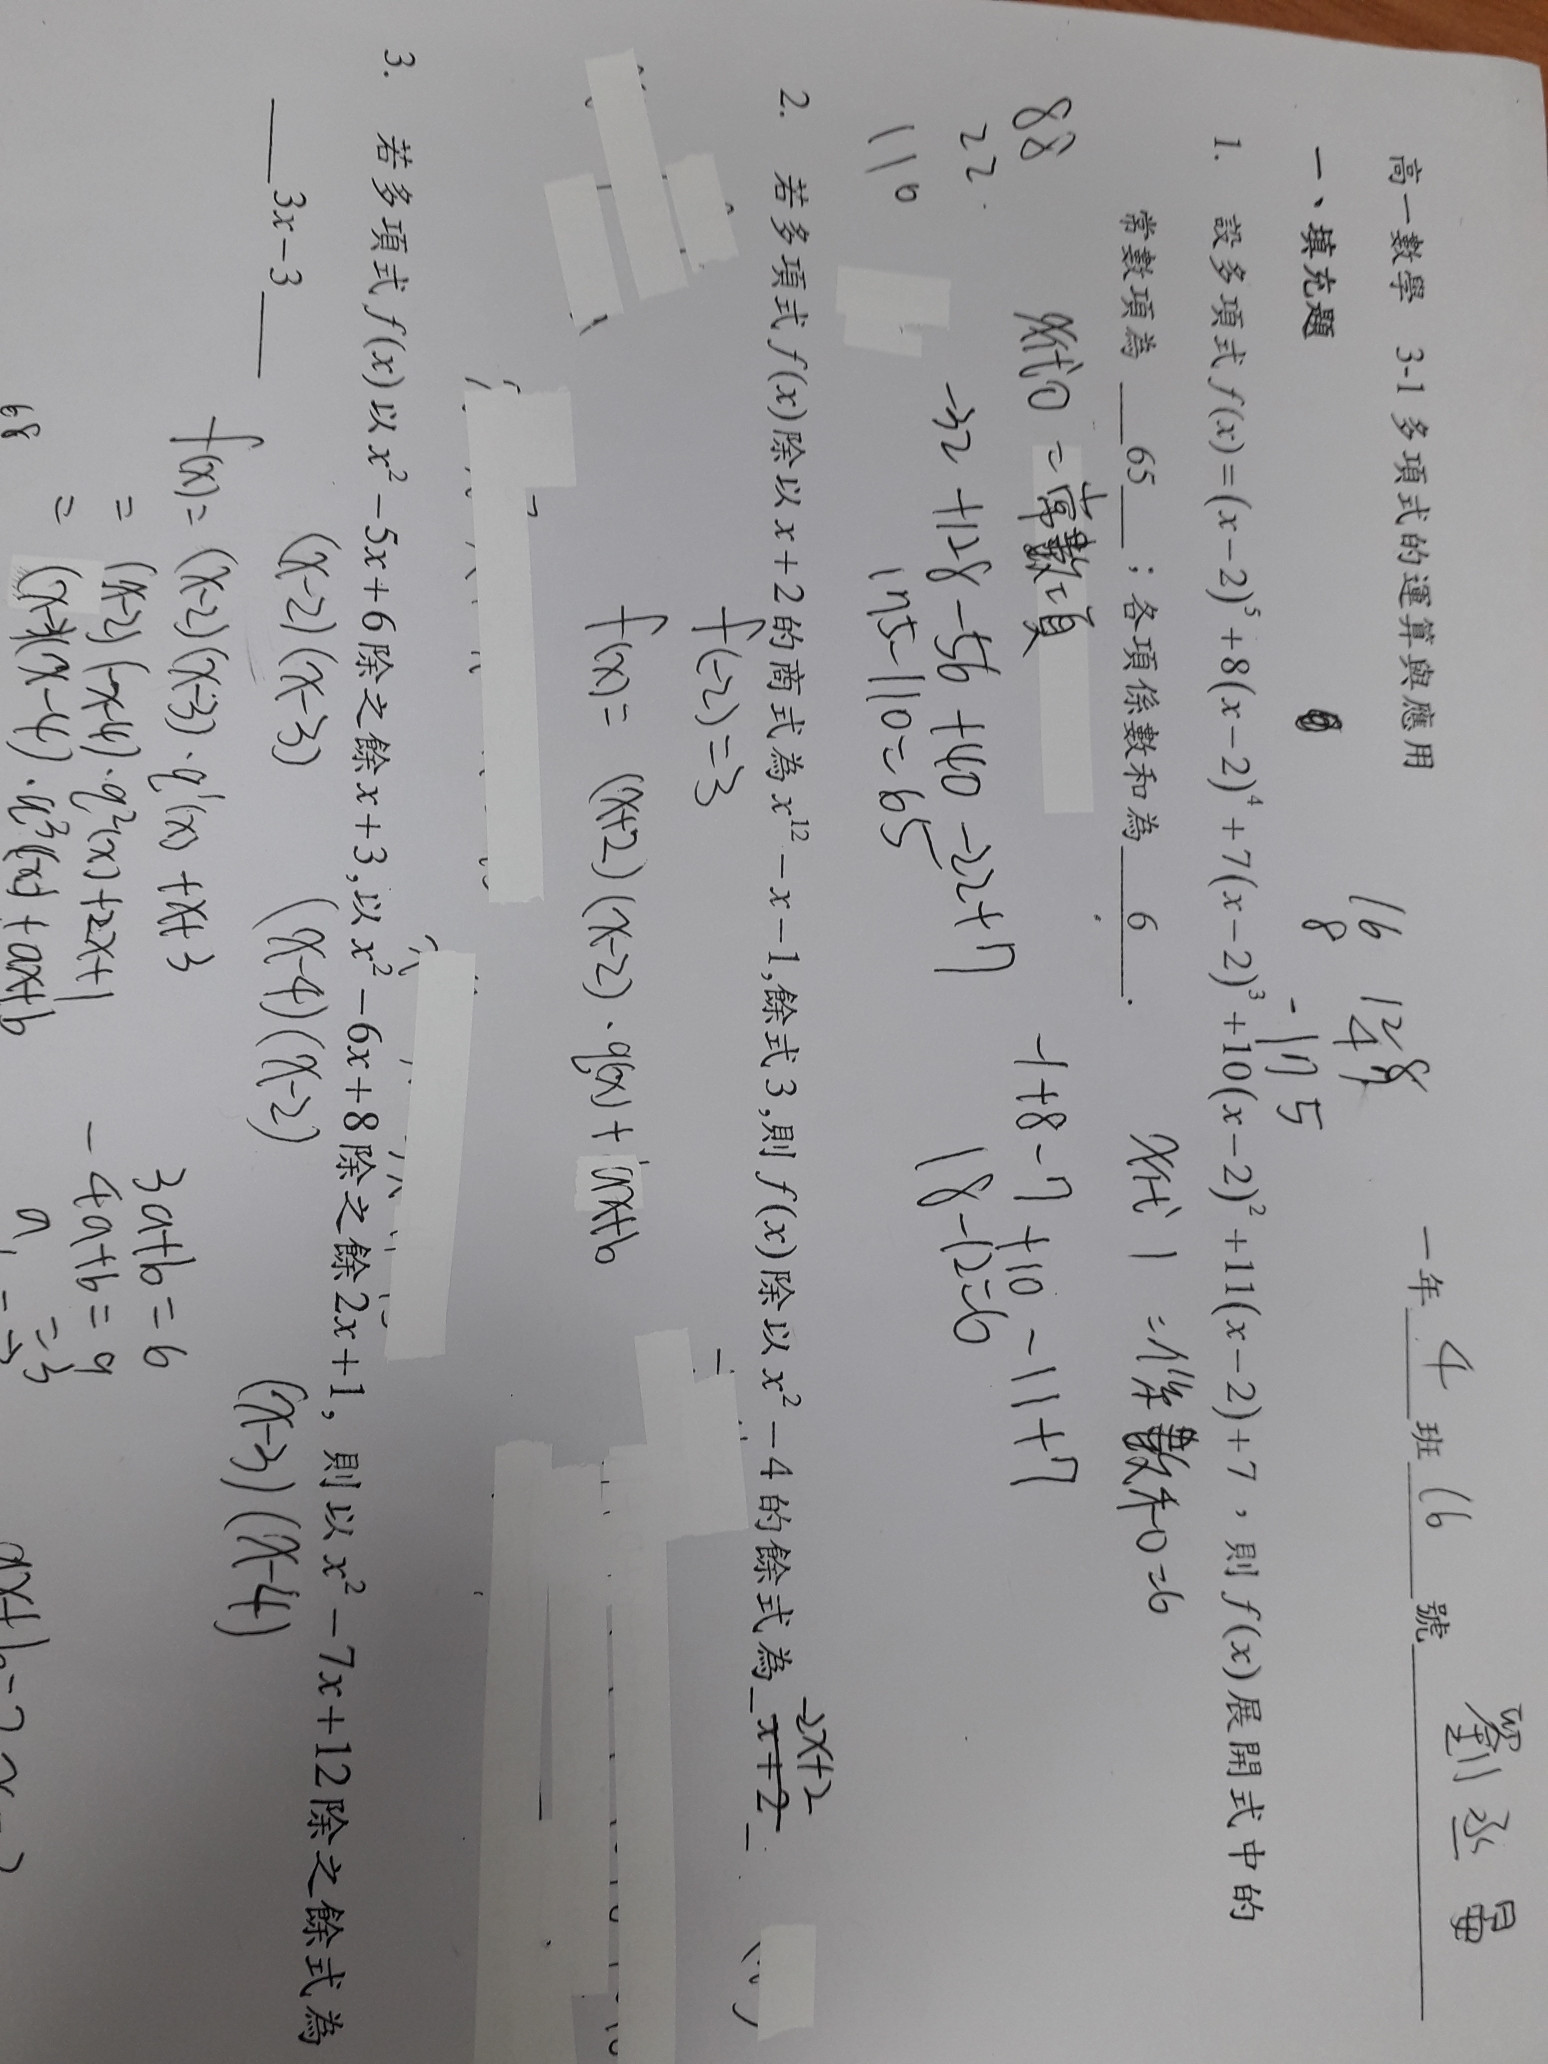 高一數學 3-1 多項式的運算與應用 一年 4 班 16 號
一、填充題
16 128
8
-175
1. 設多項式 f(x)=(x-2)⁵+8(x-2)⁴+7(x-2)³+10(x-2)²+11(x-2)+7，則 f(x) 展開式中的
常數項為 65 ；各項係數和為 6 .
x代0 = 常數項
x代1 = 係數和=6
88
22
110
-32+128-56+40-22+7
175-110=65
-1+8-7+10-11+7
18-12=6
2. 若多項式 f(x) 除以 x+2 的商式為 x¹²-x-1,餘式 3,則 f(x) 除以 x²-4 的餘式為 x+2
-2x+2
f(-2)=3
f(x)= (x+2)(x-2)·q(x)+ax+b
3. 若多項式 f(x) 以 x²-5x+6 除之餘 x+3,以 x²-6x+8 除之餘 2x+1, 則以 x²-7x+12 除之餘式為
3x-3
(x-2)(x-3) (x-4)(x-2) (x-3)(x-4)
f(x)= (x-2)(x-3)·q¹(x)+x+3
= (x-2)(x-4)·q²(x)+2x+1
= (x-3)(x-4)·q³(x)+ax+b
3a+b=6
-4a+b=9
68